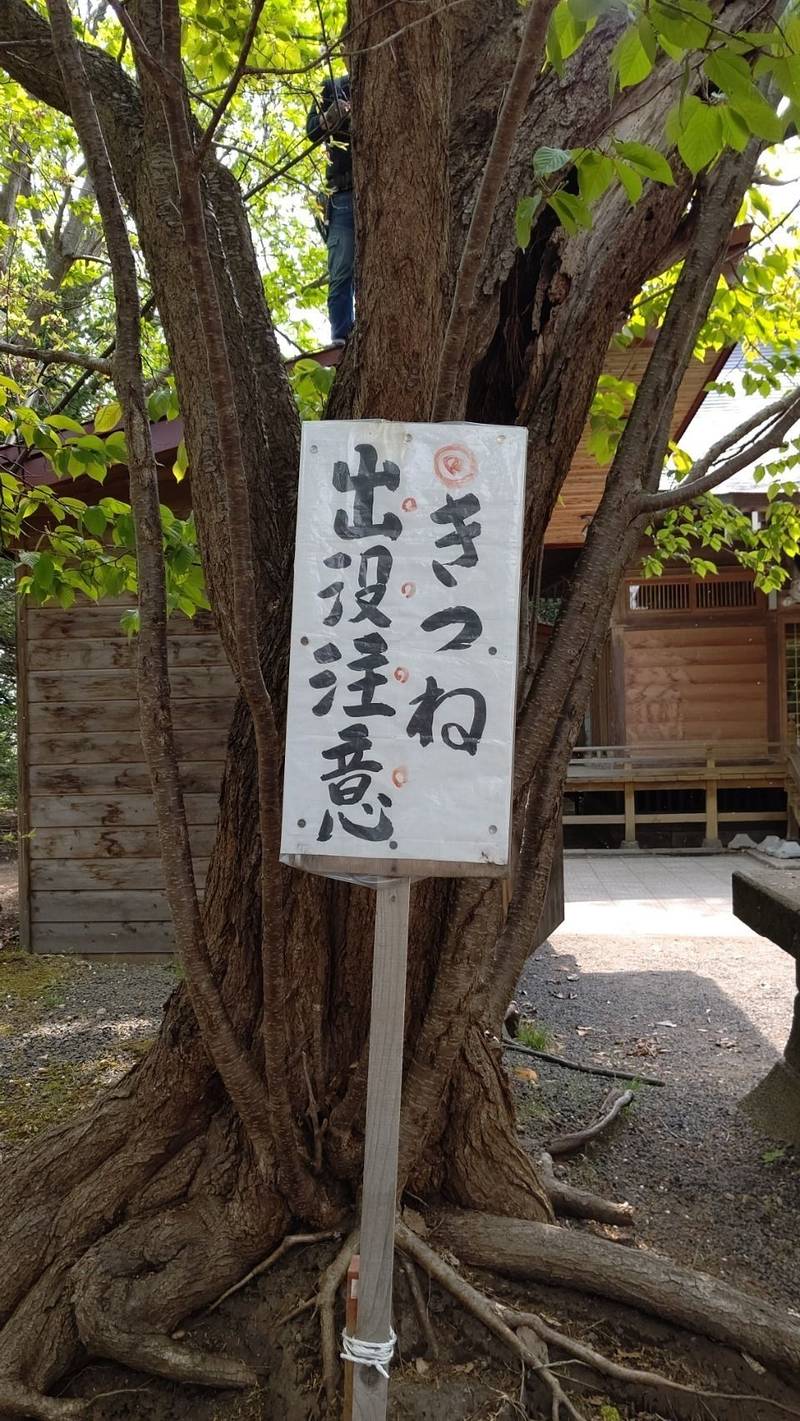 きつね
出没注意